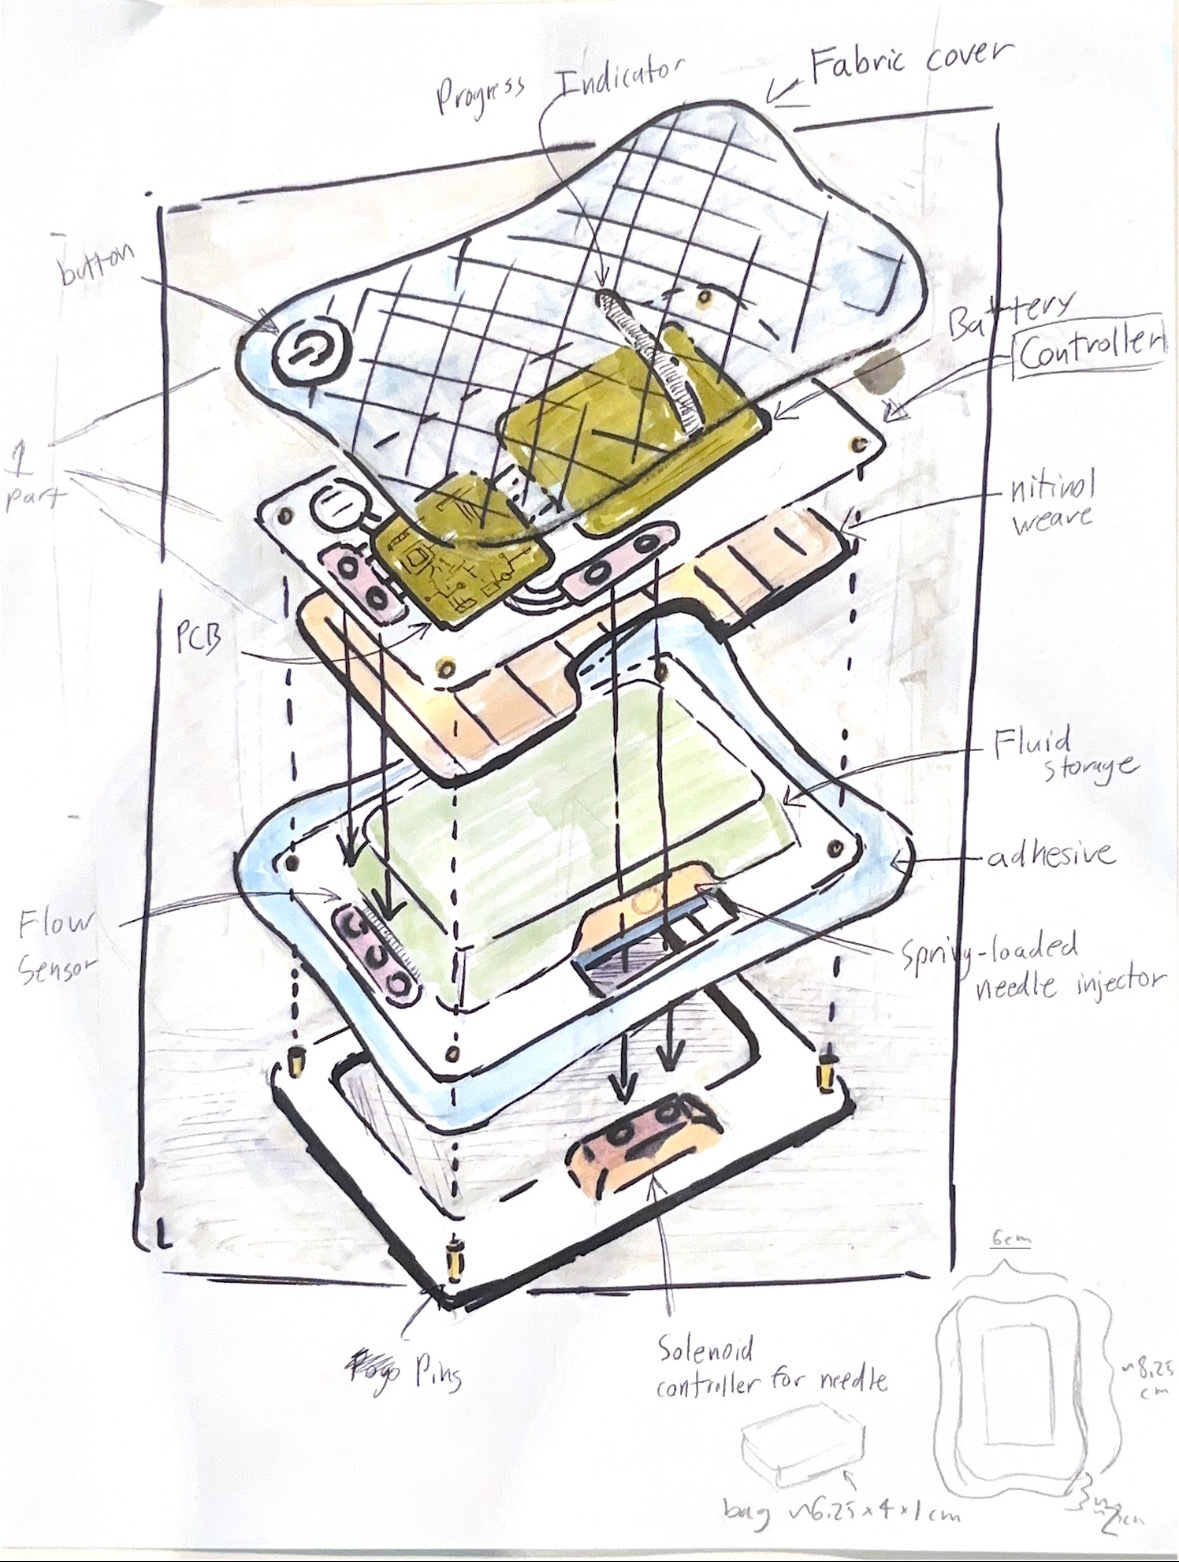 Progress Indicator
Fabric cover
button
Battery
Controller
1
part
nitinol
weave
PCB
Fluid
storage
adhesive
Flow
Sensor
Spring-loaded
needle injector
Pogo Pins
Solenoid
controller for needle
6cm
~8.25
cm
bag ~6.25 x 4 x 1 cm